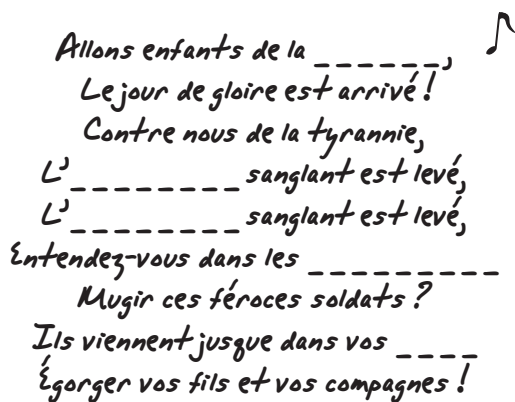 Allons enfants de la _ _ _ _ _ _,
Le jour de gloire est arrivé !
Contre nous de la tyrannie,
L'_ _ _ _ _ _ _ _ sanglant est levé,
L'_ _ _ _ _ _ _ _ sanglant est levé,
Entendez-vous dans les _ _ _ _ _ _ _ _ _
Mugir ces féroces soldats ?
Ils viennent jusque dans vos _ _ _ _
Égorger vos fils et vos compagnes !